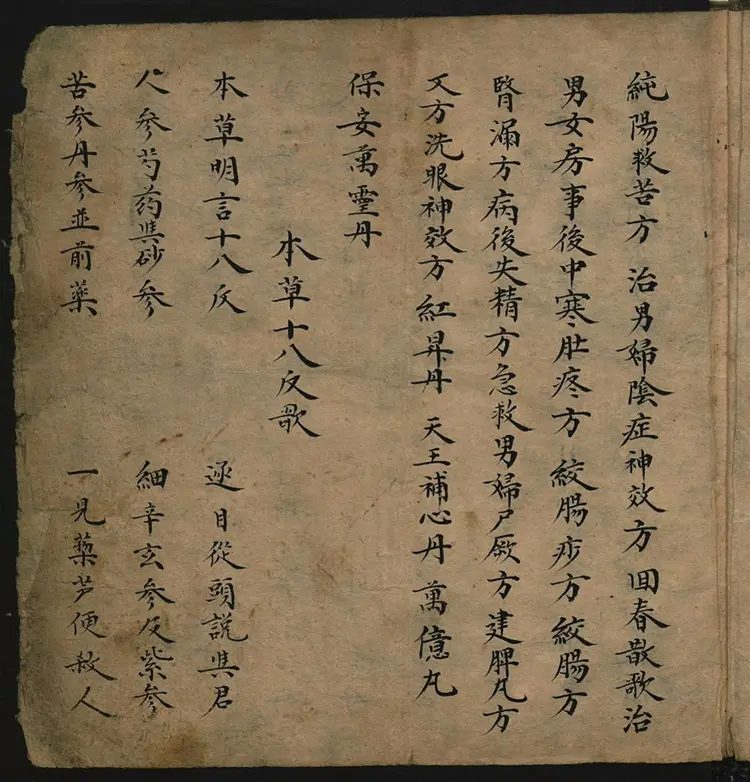 純陽救苦方 治男婦陰症神效方 回春散歌治
男女房事後中寒肚疼方 絞腸痧方 絞腸方
腎漏方 病後失精方 急救男婦尸厥方 建脾丸方
又方洗眼神效方 紅昇丹 天王補心丹 萬億丸
保安萬靈丹
本草十八反歌
本草明言十八反 逐目從頭說與君
人參芍药與砂參 細辛玄參反紫參
苦參丹參並前藥 一見藜芦便殺人